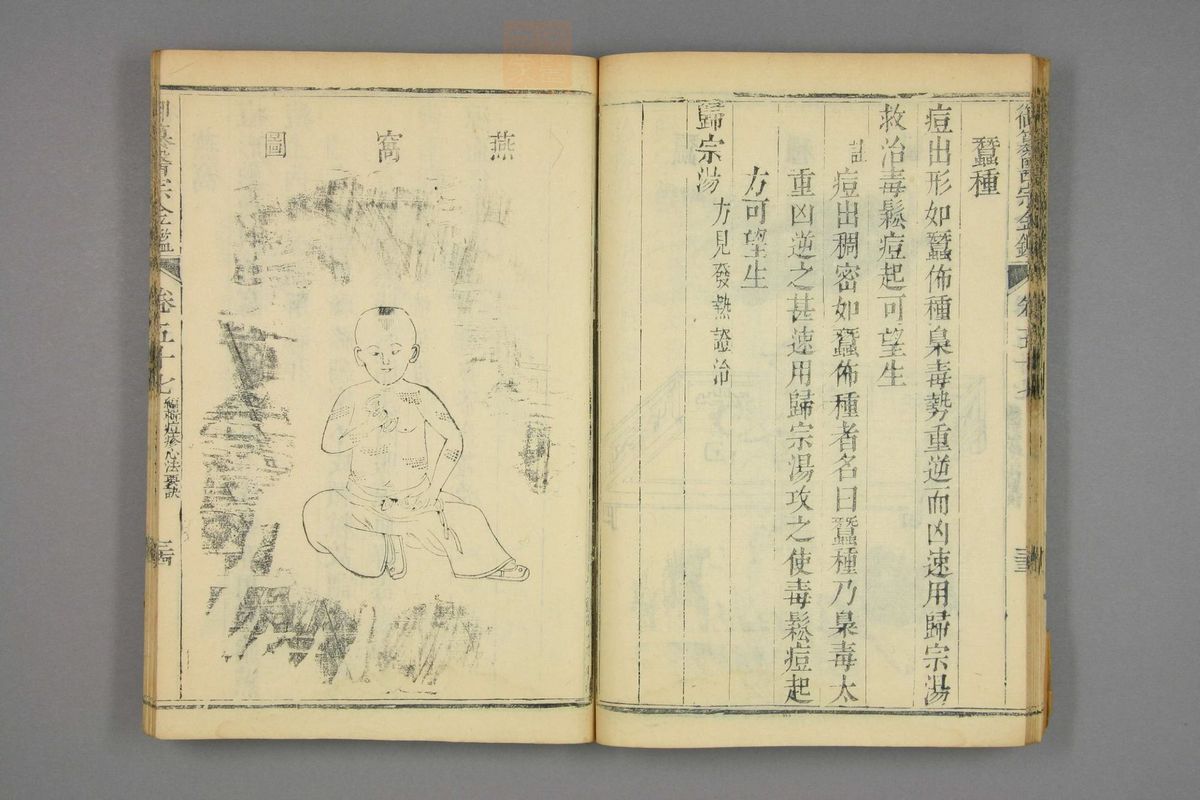 御纂醫宗金鑑
卷五十七
三三
蠶種
痘出形如蠶佈種梟毒勢重逆而凶速用歸宗湯
救治毒鬆痘起可望生
註 痘出稠密如蠶佈種者名曰蠶種乃梟毒太
重凶逆之甚速用歸宗湯攻之使毒鬆痘起
方可望生
歸宗湯 方見發熱證治
燕窩圖
御纂醫宗金鑑
卷五十七
編輯痘疹心法要訣